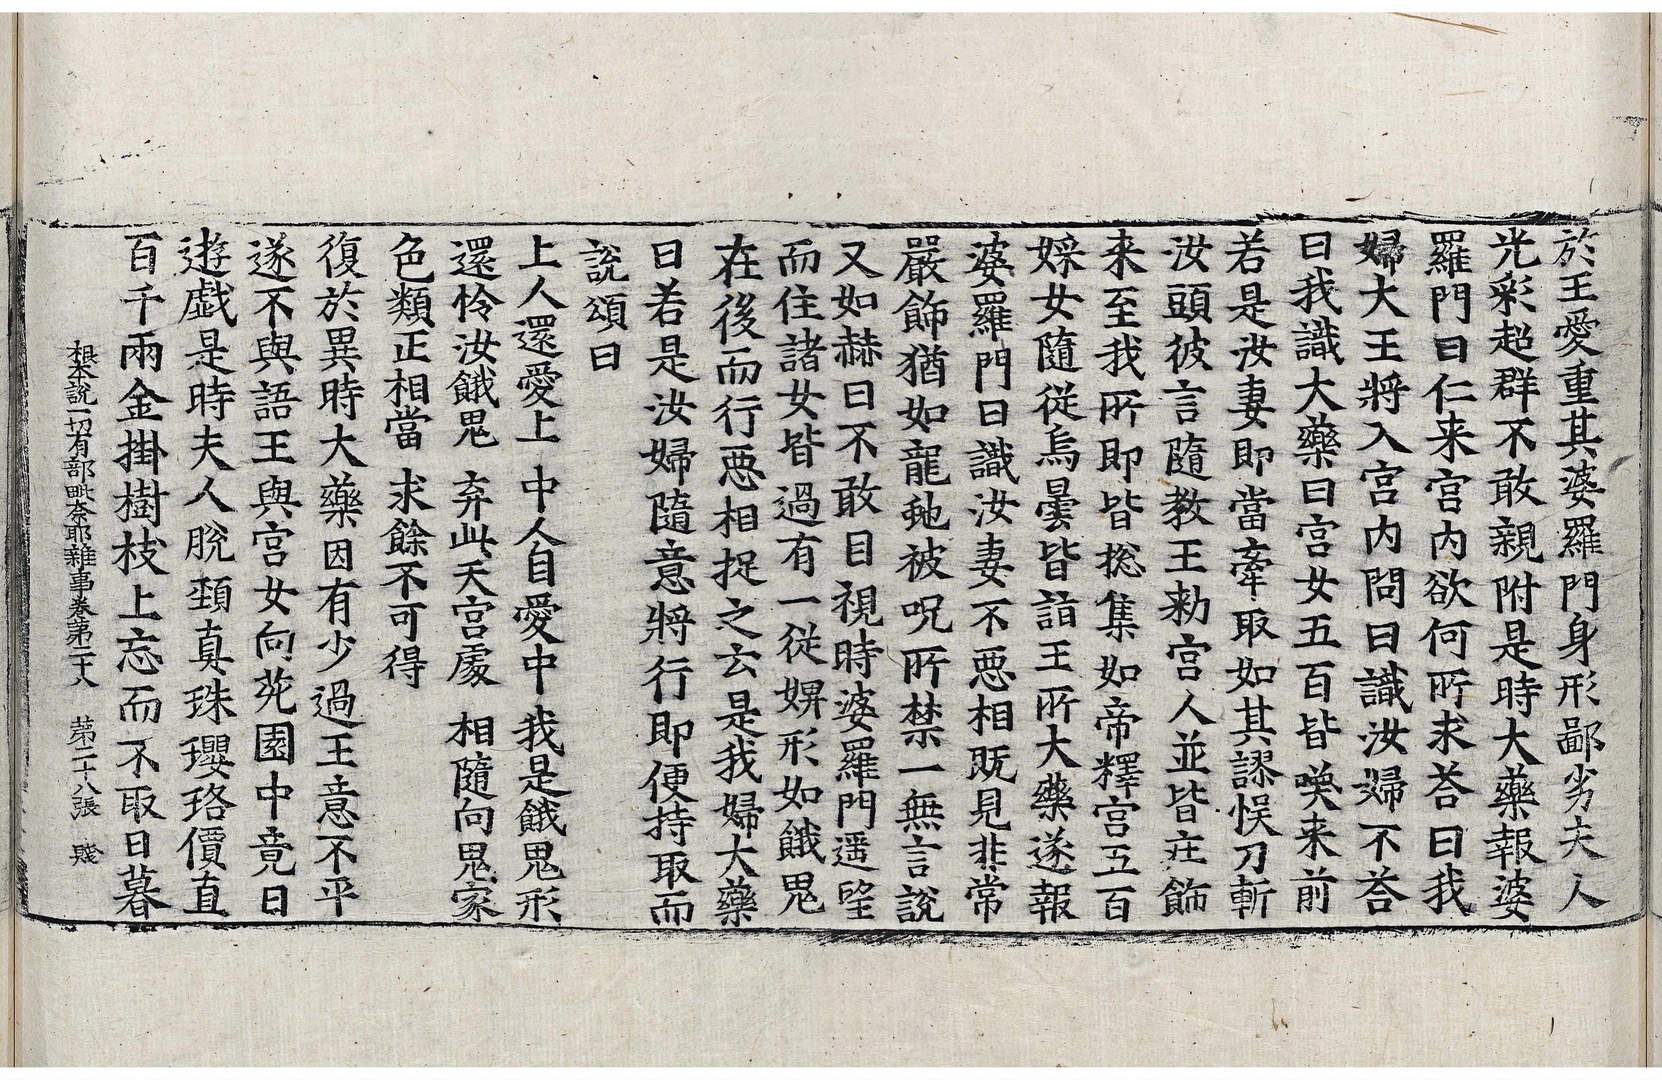 於王愛重其婆羅門身形鄙劣夫人
光彩超群不敢親附是時大藥報婆
羅門曰仁来宮内欲何所求荅曰我
婦大王將入宮内問曰識汝婦不荅
曰我識大藥曰宮女五百皆喚来前
若是汝妻即當牽取如其謬悞刀斬
汝頭彼言隨教王勑宮人並皆庄飾
来至我所即皆捴集如帝釋宮五百
婇女隨從烏曇皆詣王所大藥遂報
婆羅門曰識汝妻不悪相既見非常
嚴飾猶如龍虵被呪所禁一無言說
又如赫日不敢目視時婆羅門遥望
而住諸女皆過有一從婢形如餓鬼
在後而行悪相捉之云是我婦大藥
曰若是汝婦隨意將行即便持取而
說頌曰
上人還愛上 中人自愛中 我是餓鬼形
還怜汝餓鬼 弃此天宮處 相隨向鬼家
色類正相當 求餘不可得
復於異時大藥因有少過王意不平
遂不與語王與宮女向苑園中竟日
遊戲是時夫人脫頸真珠瓔珞價直
百千兩金掛樹枝上忘而不取日暮
根本說一切有部毗奈耶雜事卷第二十八 第二十八張 賤